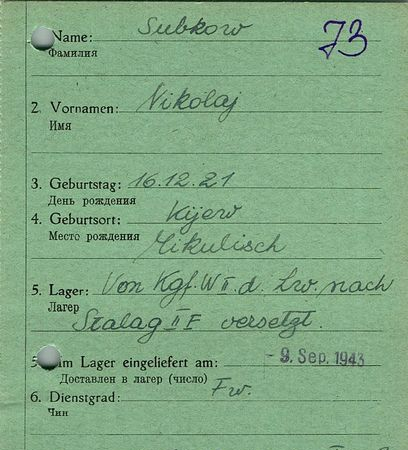 Name: Subkow
73
Фамилия
2. Vornamen: Nikolaj
Имя
3. Geburtstag: 16.12.21
День рождения
4. Geburtsort: Kijew
Место рождения Mikulisch
5. Lager: Von Kgf. W II. d. Lw. nach
Лагер
Stalag II F versetzt.
im Lager eingeliefert am: - 9. Sep. 1943
Доставлен в лагер (число)
6. Dienstgrad: Fw.
Чин